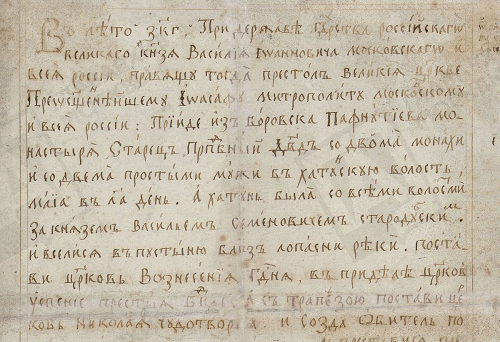 Въ лѣто ҂зк҃г, При державѣ Цр҃ства россійскагѡ
великаго кн҃зя Василія Іѡанновича московскагѡ и
всея россіи, правящу тогда престолъ великія цр҃кве
Преѡсщ҃еннѣйшему Іѡасафу митрополиту московскому
и всея россіи: Пріиде изъ воровска Пафнутіева мо-
настыря Старецъ Прп҃бный Дв҃дъ со двѣма монахи
и со двема простыми мужи в хатунскую волость,
маіа въ л҃а день. А хатунь была со всѣми волостми
за княземъ Васильемъ Семеновичемъ стародубски
и вселися въ пустыню близъ лопасни рѣки. поста-
ви цр҃ковь Вознесенія Гдня, въ придѣлѣ цр҃ковь
успеніе прест҃ыя съ трапезою постави цр҃-
ковь Николая чудотворца. и созда ѻбитель по